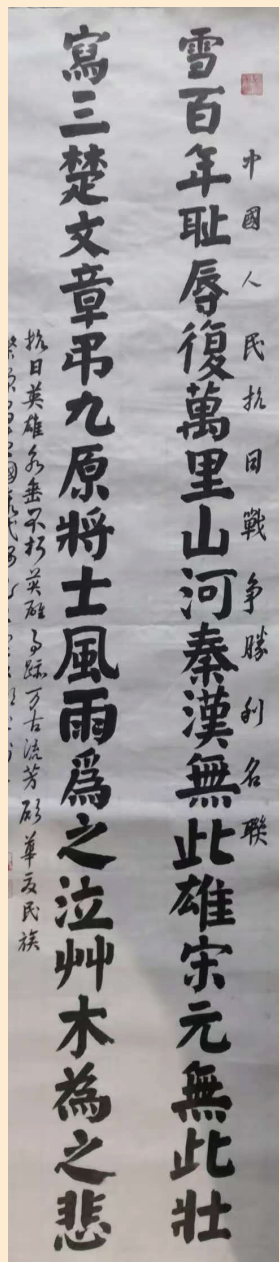 中國人民抗日戰争勝利名聯
雪百年耻辱復萬里山河秦漢無此雄宋元無此壯
寫三楚文章弔九原將士風雨爲之泣艸木為之悲
抗日英雄永垂不朽英雄事跡万古流芳 華夏民族